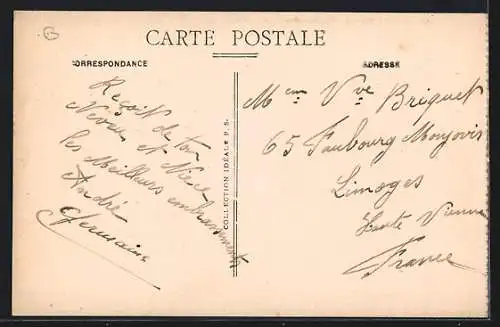 CARTE POSTALE
CORRESPONDANCE
ADRESSE
Reçoit de ton
Neveu et Nièce
les Meilleurs embrassements
André
Germaine
COLLECTION IDÉALE P. S.
Mme Vve Briquet
65 Faubourg Monjovis
Limoges
Haute Vienne
France